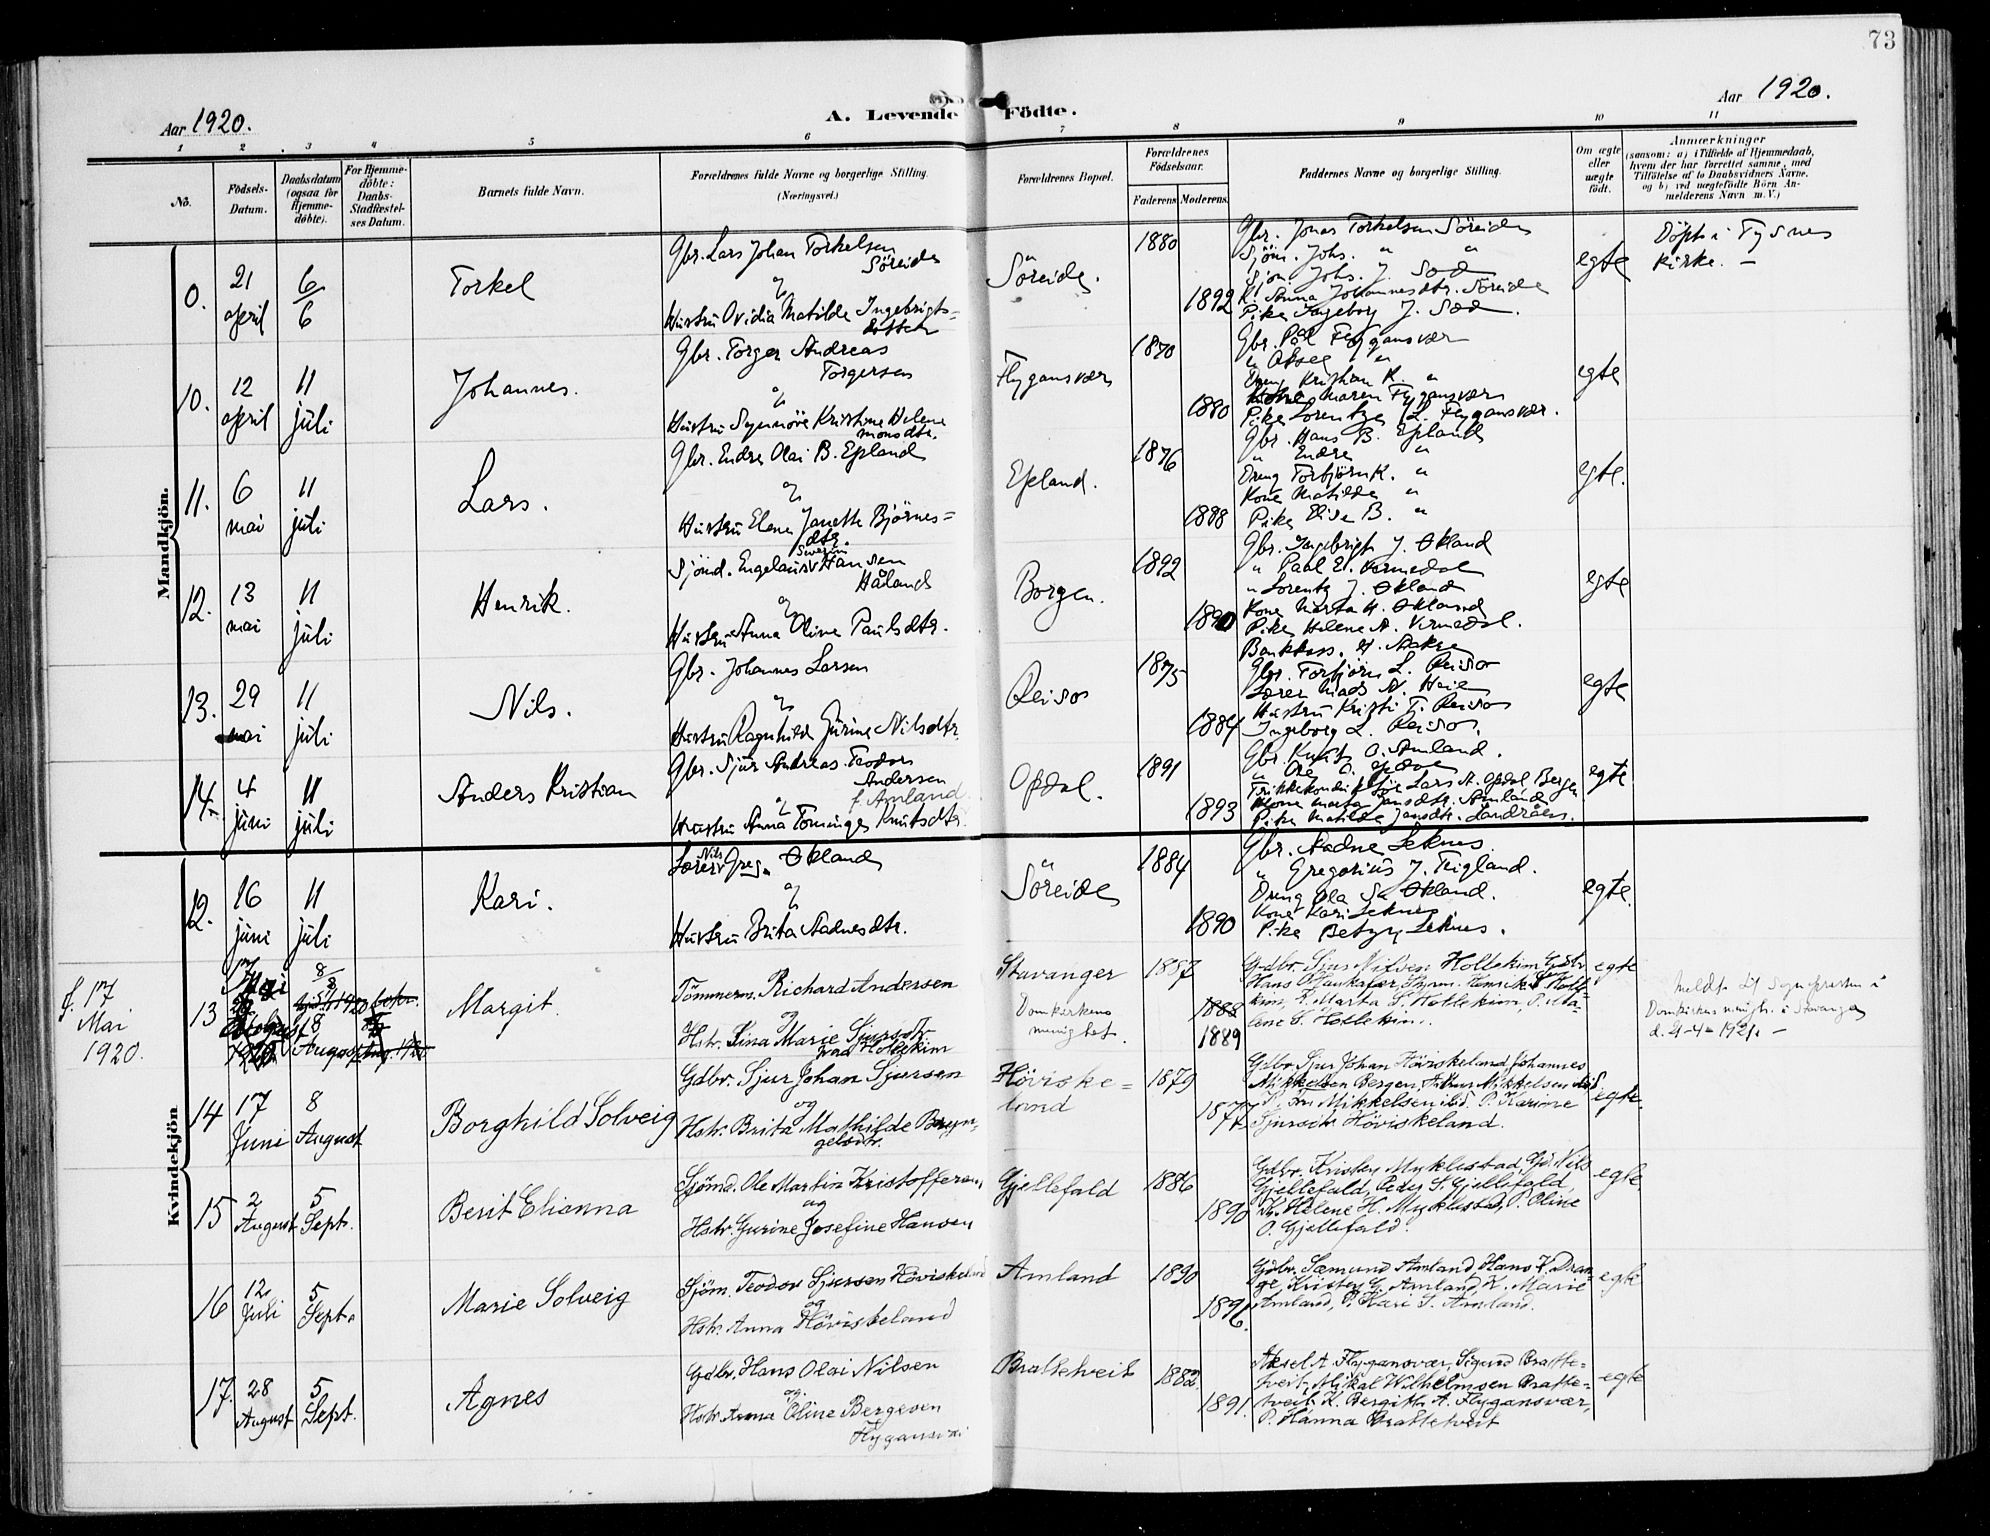 73
Aar 1920.
A. Levende Födte.
Aar 1920.
1 2 3 4 5 6 7 8 9 10 11
No.
Födsels-Datum.
Daabsdatum (ogsaa for Hjemme-döbte).
For Hjemme-döbte: Daabs-Stadfæstel-ses Datum.
Barnets fulde Navn.
Forældrenes fulde Navne og borgerlige Stilling.
(Næringsvei.)
Forældrenes Bopæl.
Forældrenes Födselsaar.
Faderens Moderens.
Faddernes Navne og borgerlige Stilling.
Om ægte eller uægte födt.
Anmærkninger
(saasom: a) i Tilfælde af Hjemmedaab,
hvem der har forrettet samme, med
Tilföielse af to Daabsvidners Navne.
og b) ved uægtefödte Börn An-
melderens Navn m.V.)
Mandkjön.
0. 21 april 6/6 Torkel
Gbr. Lars Johan Torkelsen
Söreide
og
Hustru Ovidia Matilde Ingebrigts=
datter
Söreide. 1880 1892
Gbr. Jonas Torkelsen Söreide
Sjöm. Johs. " "
Johs. J. Sod
K. Anna Johannesdtr. Söreide
Pike Ingeborg J. Sod.
egte
Döpt i Tysnes
kirke. –
10. 12 april 11 juli Johannes.
Gbr. Torger Andreas
Torgersen
og
Hustru Synnöve Kristine Helene
monsdtr.
Flygansvær 1870 1880
Gbr. Pål Flygansvær
Dreng Kristian K. "
Maren Flygansvær
Pike Lorentze L. Flygansvær.
egte
11. 6 mai 11 juli Lars.
Gbr. Endre Olai B. Epland
og
Hustru Elene Janette Bjørnes=
dtr.
Epland. 1876 1888
Gbr. Hans B. Epland
" Endre "
Dreng Torbjörn K. "
Kone Matilde "
Pike Elise B. "
egte.
12. 13 mai 11 juli Henrik.
Sjömd. Engelaus Severin Hansen
Håland
og
Hustru Anna Oline Paulsdtr.
Borgen. 1892 1890
Gbr. Ingebrigt J. Økland
" Paul E. Vermedal
" Lorentz J. Økland
Kone Marta H. Økland
Pike Helene A. Vermedal.
egte
13. 29 mai 11 juli Nils.
Gbr. Johannes Larsen
og
Hustru Ragnhild Jürine Nilsdtr.
Reisos 1875 1884
Gbr. Torbjörn L. Reisos
Lærer Mads N. Heie
Hustru Kristi T. Reisos
Ingeborg L. Reisos.
egte
14. 4 juni 11 juli Anders Kristian
Gbr. Sjur Andreas Teodor
Andersen
f. Amland
og
Hustru Anna Tominge Knutsdtr.
Opdal. 1891 1893
Gbr. Knut O. Amland.
Lars A. Opdal Bergen
Kone Marta Jansdtr. Amland
Pike Matilde Jansdtr. Landråen.
egte
Kvindekjön
12. 16 juni 11 juli Kari.
Lærer Nils Greg. Økland
og
Hustru Brita Aadnesdtr.
Söreide 1884 1890
Gbr. Aadne Leknes
" Gregorius J. Teigland.
Dreng Ola Sa Økland.
Kone Kari Leknes
Pike Betzy Leknes.
egte.
f. 17
Mai
1920.
13 17 Mai 8/8 Margit.
Tömmerm. Richard Andersen
og
Hstr. Lina Marie Sjursdtr.
Hollekim
Stavanger
Domkirkens
menighet. 1887 1889
Gdbr. Sjur Nilsen Hollekim
K. Marta S. Hollekim,
lene S. Hollekim.
egte
Meldt til Sognepræsten i
Domkirkens menigh. i Stavanger
d. 21-4-1921. –
14 17 Juni 8 August Borghild Solveig
Gdbr. Sjur Johan Sjursen
og
Hstr. Brita Mathilde Bryn-
gelsdtr.
Höviske=
land 1879 1877
Gdbr. Sjur Johan Höviskeland, Johannes
Mikkelsen Bergen, Mikkelsen ibid.
Mikkelsen ibid. P. Karine
Sjursdtr Höviskeland.
egte.
15 2 August 5 Sept. Berit Elianna
Sjömd. Ole Martin Kristoffersen
og
Hstr. Gurine Josefine Hansen
Gjellefald 1886 1890
Gdbr. Kristen Myklestad, Gd. Nils
Gjellefald, Peder S. Gjellefald,
K. Helene H. Myklestad, P. Oline
O. Gjellefald.
egte
16 12 Juli 5 Sept. Marie Solveig
Sjöm. Teodor Sjursen Höviskeland
og
Hstr. Anna Höviskeland
Amland 1890 1896.
Gdbr. Sæmund Amland, Hans K. Dran-
ge, Kristen G. Amland, K. Marie
Amland, P. Kari S. Amland.
egte
17. 28 August 5 Sept. Agnes
Gdbr. Hans Olai Nilsen
og
Hstr. Anna Oline Bergesen
Brattetveit 1882. 1891.
Aksel A. Flygansvær, Sigurd Bratte=
tveit, Mikal Wilhelmsen Bratte=
tveit, K. Bergitte A. Flygansvær,
P. Hanna Brattetveit
egte